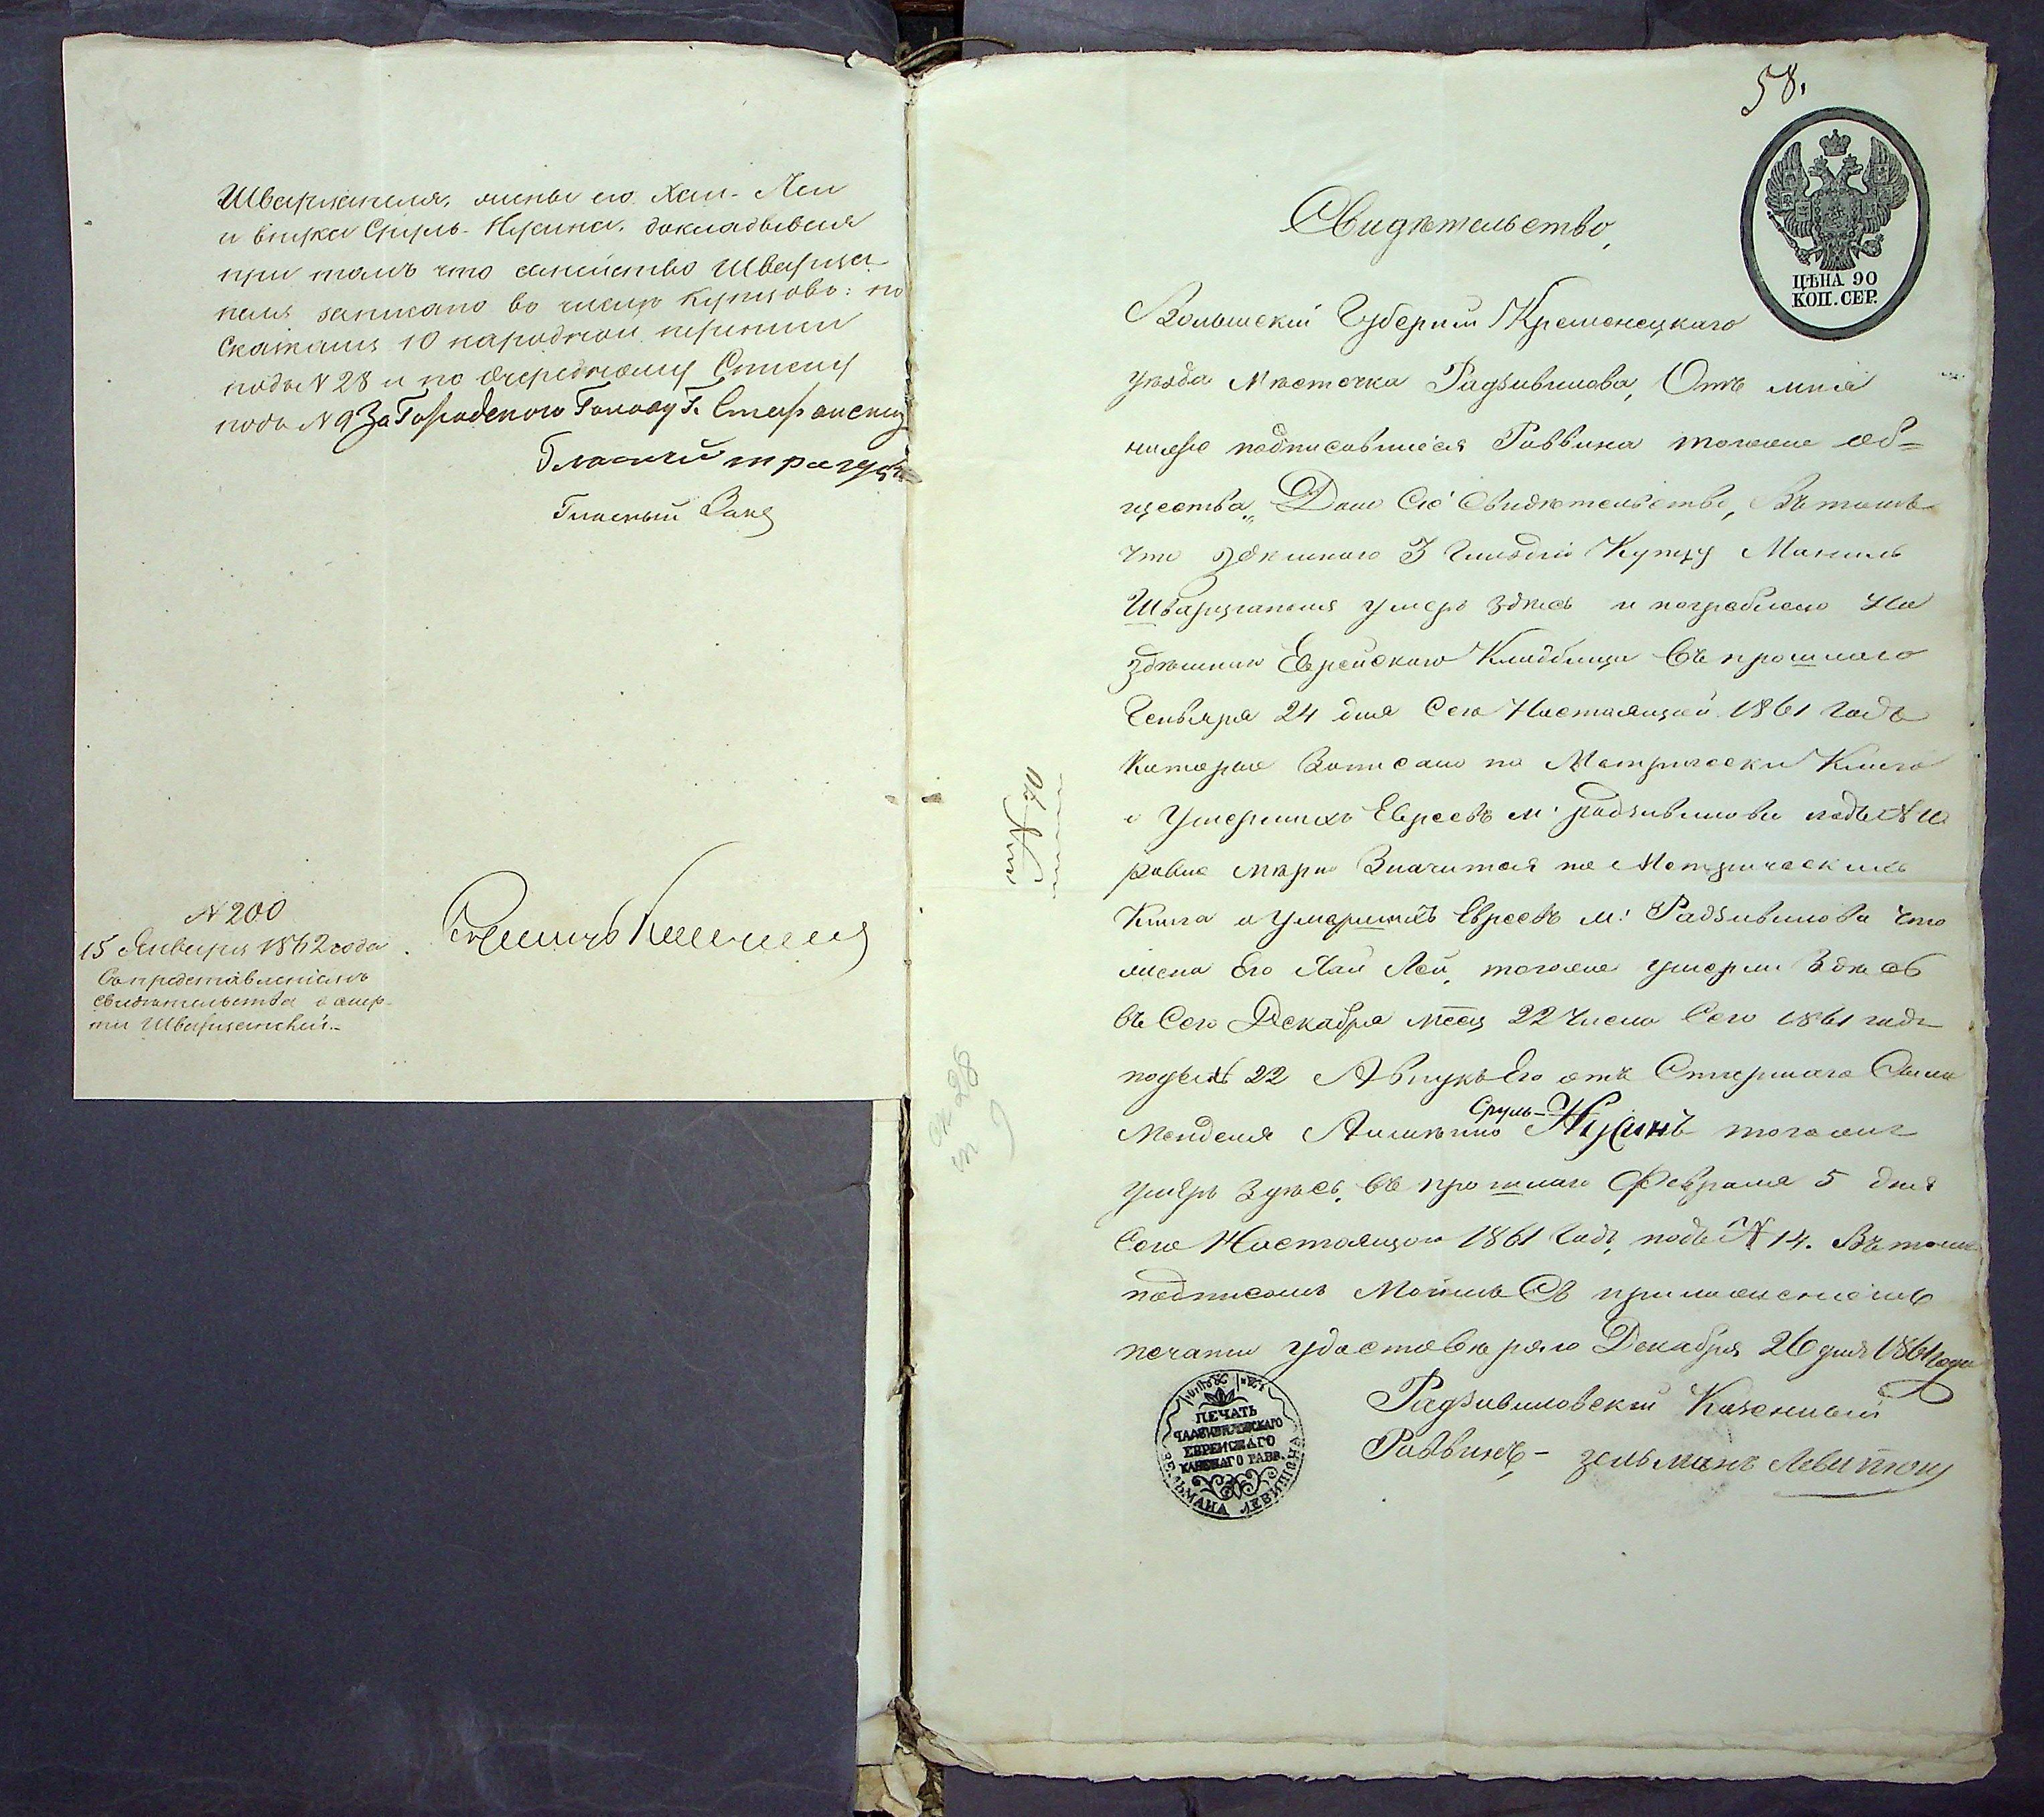 Шварцапеля, жены его Хаи-Леи
и внука Сруль-Нусина. докладывая
при томъ что семейство Шварца
пеля записано во число купцовъ: по
Сказкамъ 10 народной переписи
подъ N 28 и по очередному Списку
подъ N 9 За Городскаго Голову Г.
Гласный
Гласный
N 200
15 Января 1862 года
Съ представленіемъ
свидѣтельства о смер-
ти Шварцапелей.-
58.
Свидѣтельство,
ЦѢНА 90
КОП. СЕР.
Волынскій Губерніи Кременецкаго
уѣзда Мѣстечка Радзивилова, Отъ мня
ниже подписавшіеся Раввина тогоже об=
щества, Дано Сіе Свидѣтельство, Въ томъ
что здѣшнаго 3 Гильдіи Купцу Маниль
Шварцапеля умеръ здѣсь и погребено На
здѣшнию Еврейскаго Кладбища Въ прошлаго
Генваря 24 дня Сего Настоящей 1861 годъ
Которые Записано по Метрически Книга
о Умершихъ Евреевъ м: радзивилови подъ N 10
равно мѣри Значится по Метрическимъ
Книга о Умершихъ Евреевъ м: Радзивилова что
жена Его Хая Лея, тогоже умерли Здѣсь
въ Сего Декабря мѣсц 22 Числа Сего 1861 годъ
подъ N 22 А Внукъ Его отъ Старшаго Сына
Менделя Сруль-Нусинъ тогоже
умеръ Здѣсь, въ прошлаго Февраля 5 дня
Сего Настоящаго 1861 Годъ, подъ N 14. Въ томъ
подписомъ Моимъ Съ приложеніемъ
печати удостовѣряю Декабря 26 дня 1861 года
Радзивиловскій Казенный
Раввинъ - зельманъ
ПЕЧАТЬ
РАДЗИВИЛОВСКАГО
ЕВРЕЙСКАГО
КАЗЕНАГО РАВВ.
ЗЕЛЬМАНА
28
9